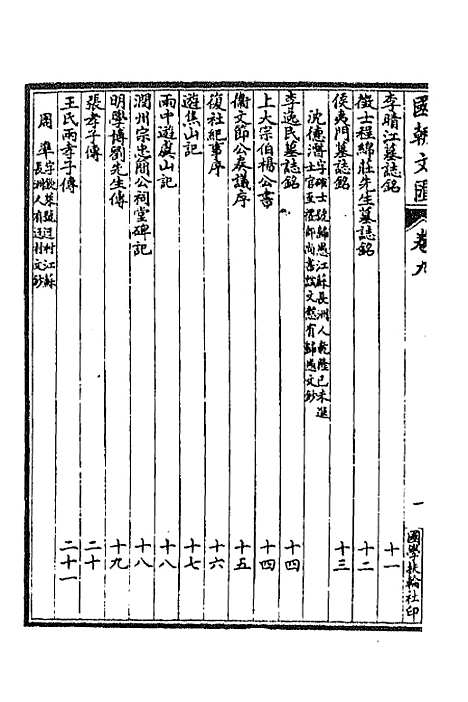 國朝文匯 卷九 一 國學扶輪社印
李晴江墓誌銘 十一
徵士程緜莊先生墓誌銘 十二
侯夷門墓誌銘 十三
沈德潛 字確士號歸愚江蘇長洲人乾隆己未進
士官至禮部尚書諡文慤有歸愚文鈔
李逸民墓誌銘 十四
上大宗伯楊公書 十四
衛文節公奏議序 十五
復社紀事序 十六
遊焦山記 十七
雨中遊虞山記 十八
潤州宗忠簡公祠堂碑記 十八
明學博劉先生傳 十九
張孝子傳 二十
王氏兩孝子傳 二十一
周準 字欽萊號迂村江蘇
長洲人有迂村文鈔